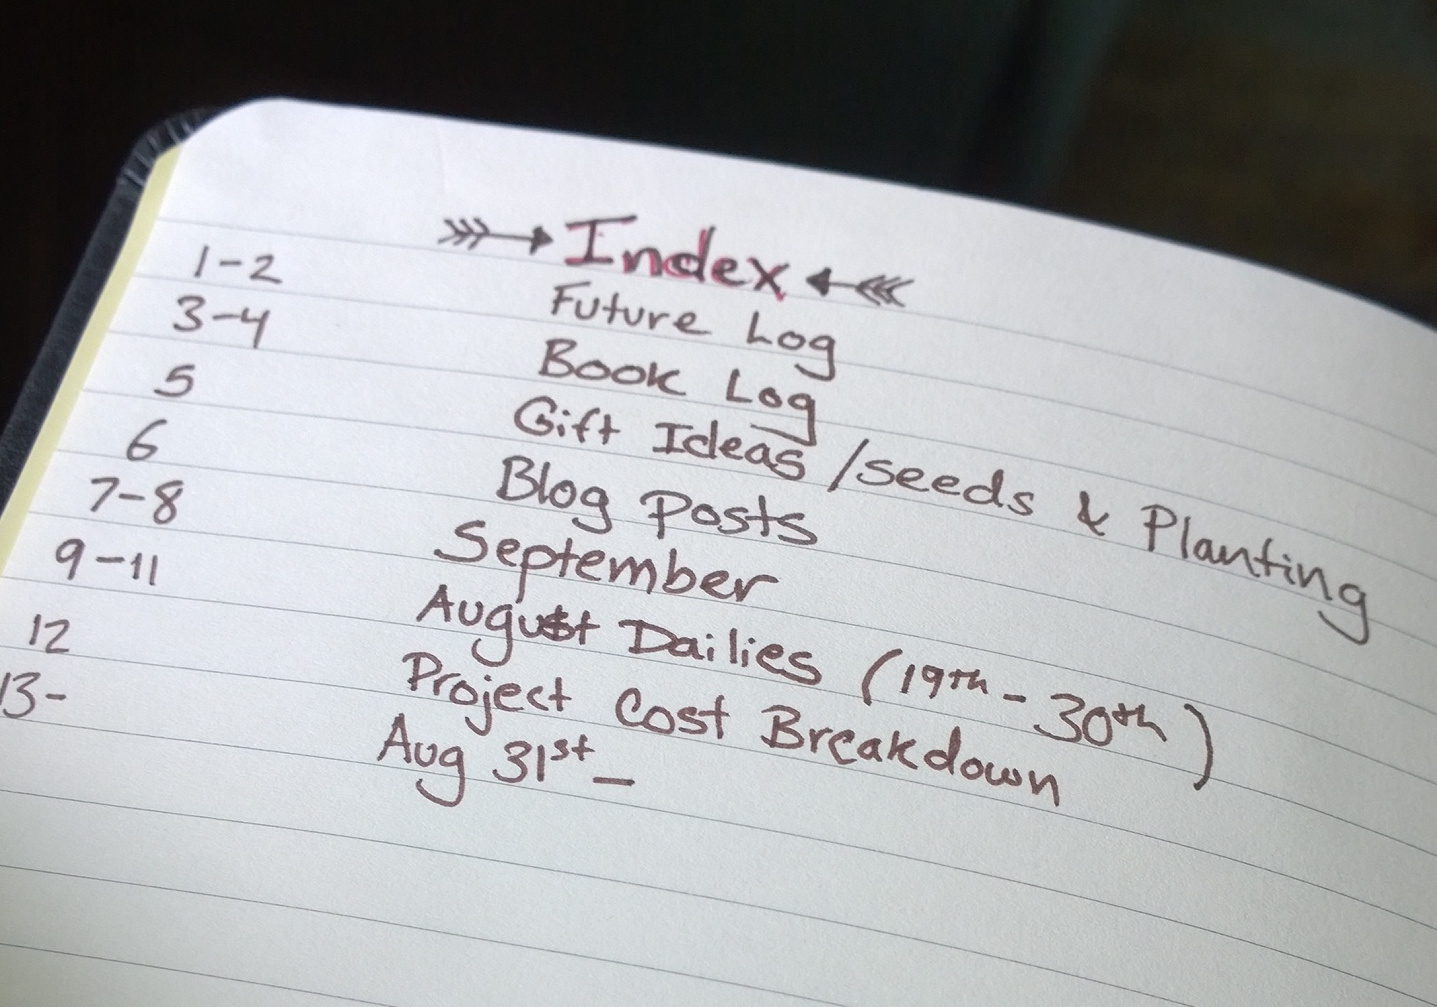 Index
1-2 Future Log
3-4 Book Log
5 Gift Ideas /seeds & Planting
6 Blog Posts
7-8 September
9-11 August Dailies (19th - 30th)
12 Project Cost Breakdown
13- Aug 31st -